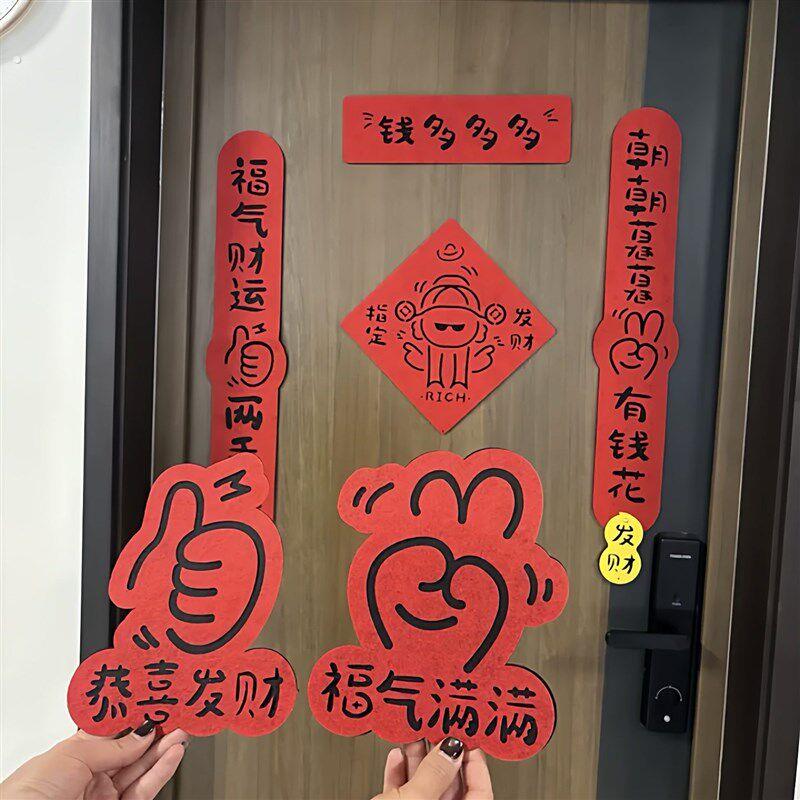 钱多多多
福气财运
两
朝朝暮暮
有钱花
指定
发财
·RICH·
发财
恭喜发财
福气满满